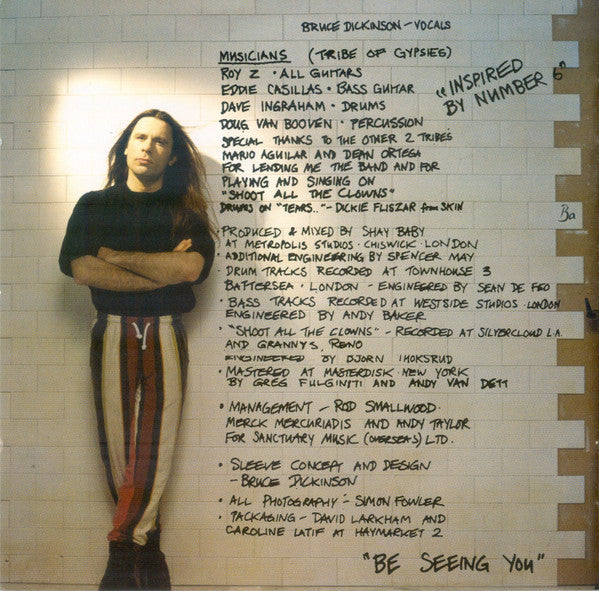 BRUCE DICKINSON - VOCALS
MUSICIANS (TRIBE OF GYPSIES)
ROY Z • ALL GUITARS
EDDIE CASILLAS • BASS GUITAR
DAVE INGRAHAM • DRUMS
DOUG VAN BOOVEN • PERCUSSION
"INSPIRED
BY NUMBER 6"
SPECIAL THANKS TO THE OTHER 2 TRIBES
MARIO AGUILAR AND DEAN ORTEGA
FOR LENDING ME THE BAND AND FOR
PLAYING AND SINGING ON
"SHOOT ALL THE CLOWNS"
DRUMS ON "TEARS.." - DICKIE FLISZAR from SKIN
Ba
• PRODUCED & MIXED BY SHAY BABY
AT METROPOLIS STUDIOS • CHISWICK • LONDON
• ADDITIONAL ENGINEERING BY SPENCER MAY
• DRUM TRACKS RECORDED AT TOWNHOUSE 3
BATTERSEA • LONDON - ENGINEERED BY SEAN DE FEO
• BASS TRACKS RECORDED AT WESTSIDE STUDIOS • LONDON
ENGINEERED BY ANDY BAKER
• "SHOOT ALL THE CLOWNS" - RECORDED AT SILVERCLOUD L.A.
AND GRANNYS, RENO
ENGINEERED BY BJORN THORSRUD
• MASTERED AT MASTERDISK • NEW YORK
BY GREG FULGINITI AND ANDY VAN DETT
• MANAGEMENT - ROD SMALLWOOD
MERCK MERCURIADIS AND ANDY TAYLOR
FOR SANCTUARY MUSIC (OVERSEAS) LTD.
• SLEEVE CONCEPT AND DESIGN
- BRUCE DICKINSON
• ALL PHOTOGRAPHY - SIMON FOWLER
• PACKAGING - DAVID LARKHAM AND
CAROLINE LATIF AT HAYMARKET 2
"BE SEEING YOU"